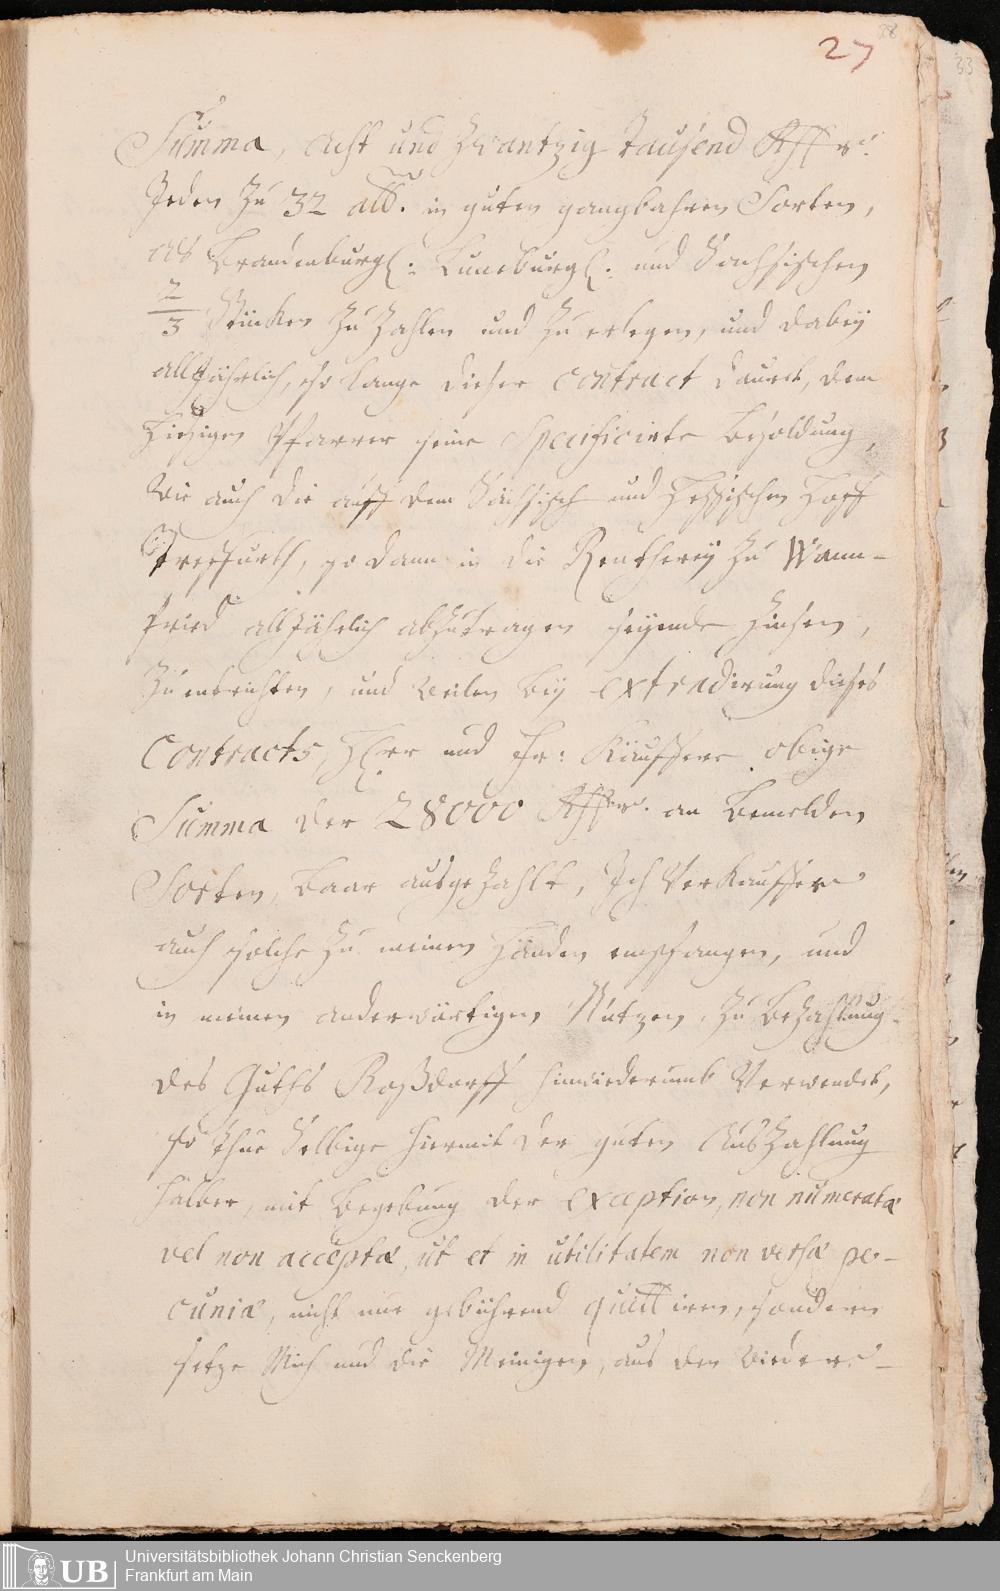 27
28
33
Summa, Acht und Zwantzig Tausend Rthlr.
Jeden Zu 32 alb. in guten gangbahren Sorten,
als Brandenburgl: Luneburgl: und Sächsischen
2/3 Stücken Zu Zahlen und Zu erlegen, und dabeÿ
allJährlich, so lange dieser Contract dauret, dem
hiesigen Pfarrer seine Specificirte Besoldung,
Wie auch die auff dem Sächsisch und Hessischen Hoff
Treffurth, so dann in die Rentherey Zu Wann-
fried allJährlich abZutragen seÿende Zinsen,
Zu entrichten, und weilen beÿ extradirung dieses
Contracts, Herr und Fr: Käuffere obige
Summa der 28000 Rthlr. an bemelden
Sorten, baar ausgeZahlt, Ich Verkäuffer
auch solche Zu meinen Händen empfangen, und
in meinen anderwärtigen Nutzen, Zu beZahlung
des Guths Roßdorff hinwiederumb Verwendet,
so thue Selbige hiermit der guten AusZahlung
halber, mit begebung der exception, non numeratæ
vel non acceptæ, ut et in utilitatem non versæ pe-
cuniæ, nicht nur gebührend quittiren, sondern
setze Mich und die Meinigen, aus der Wieder-
UB
Universitätsbibliothek Johann Christian Senckenberg
Frankfurt am Main